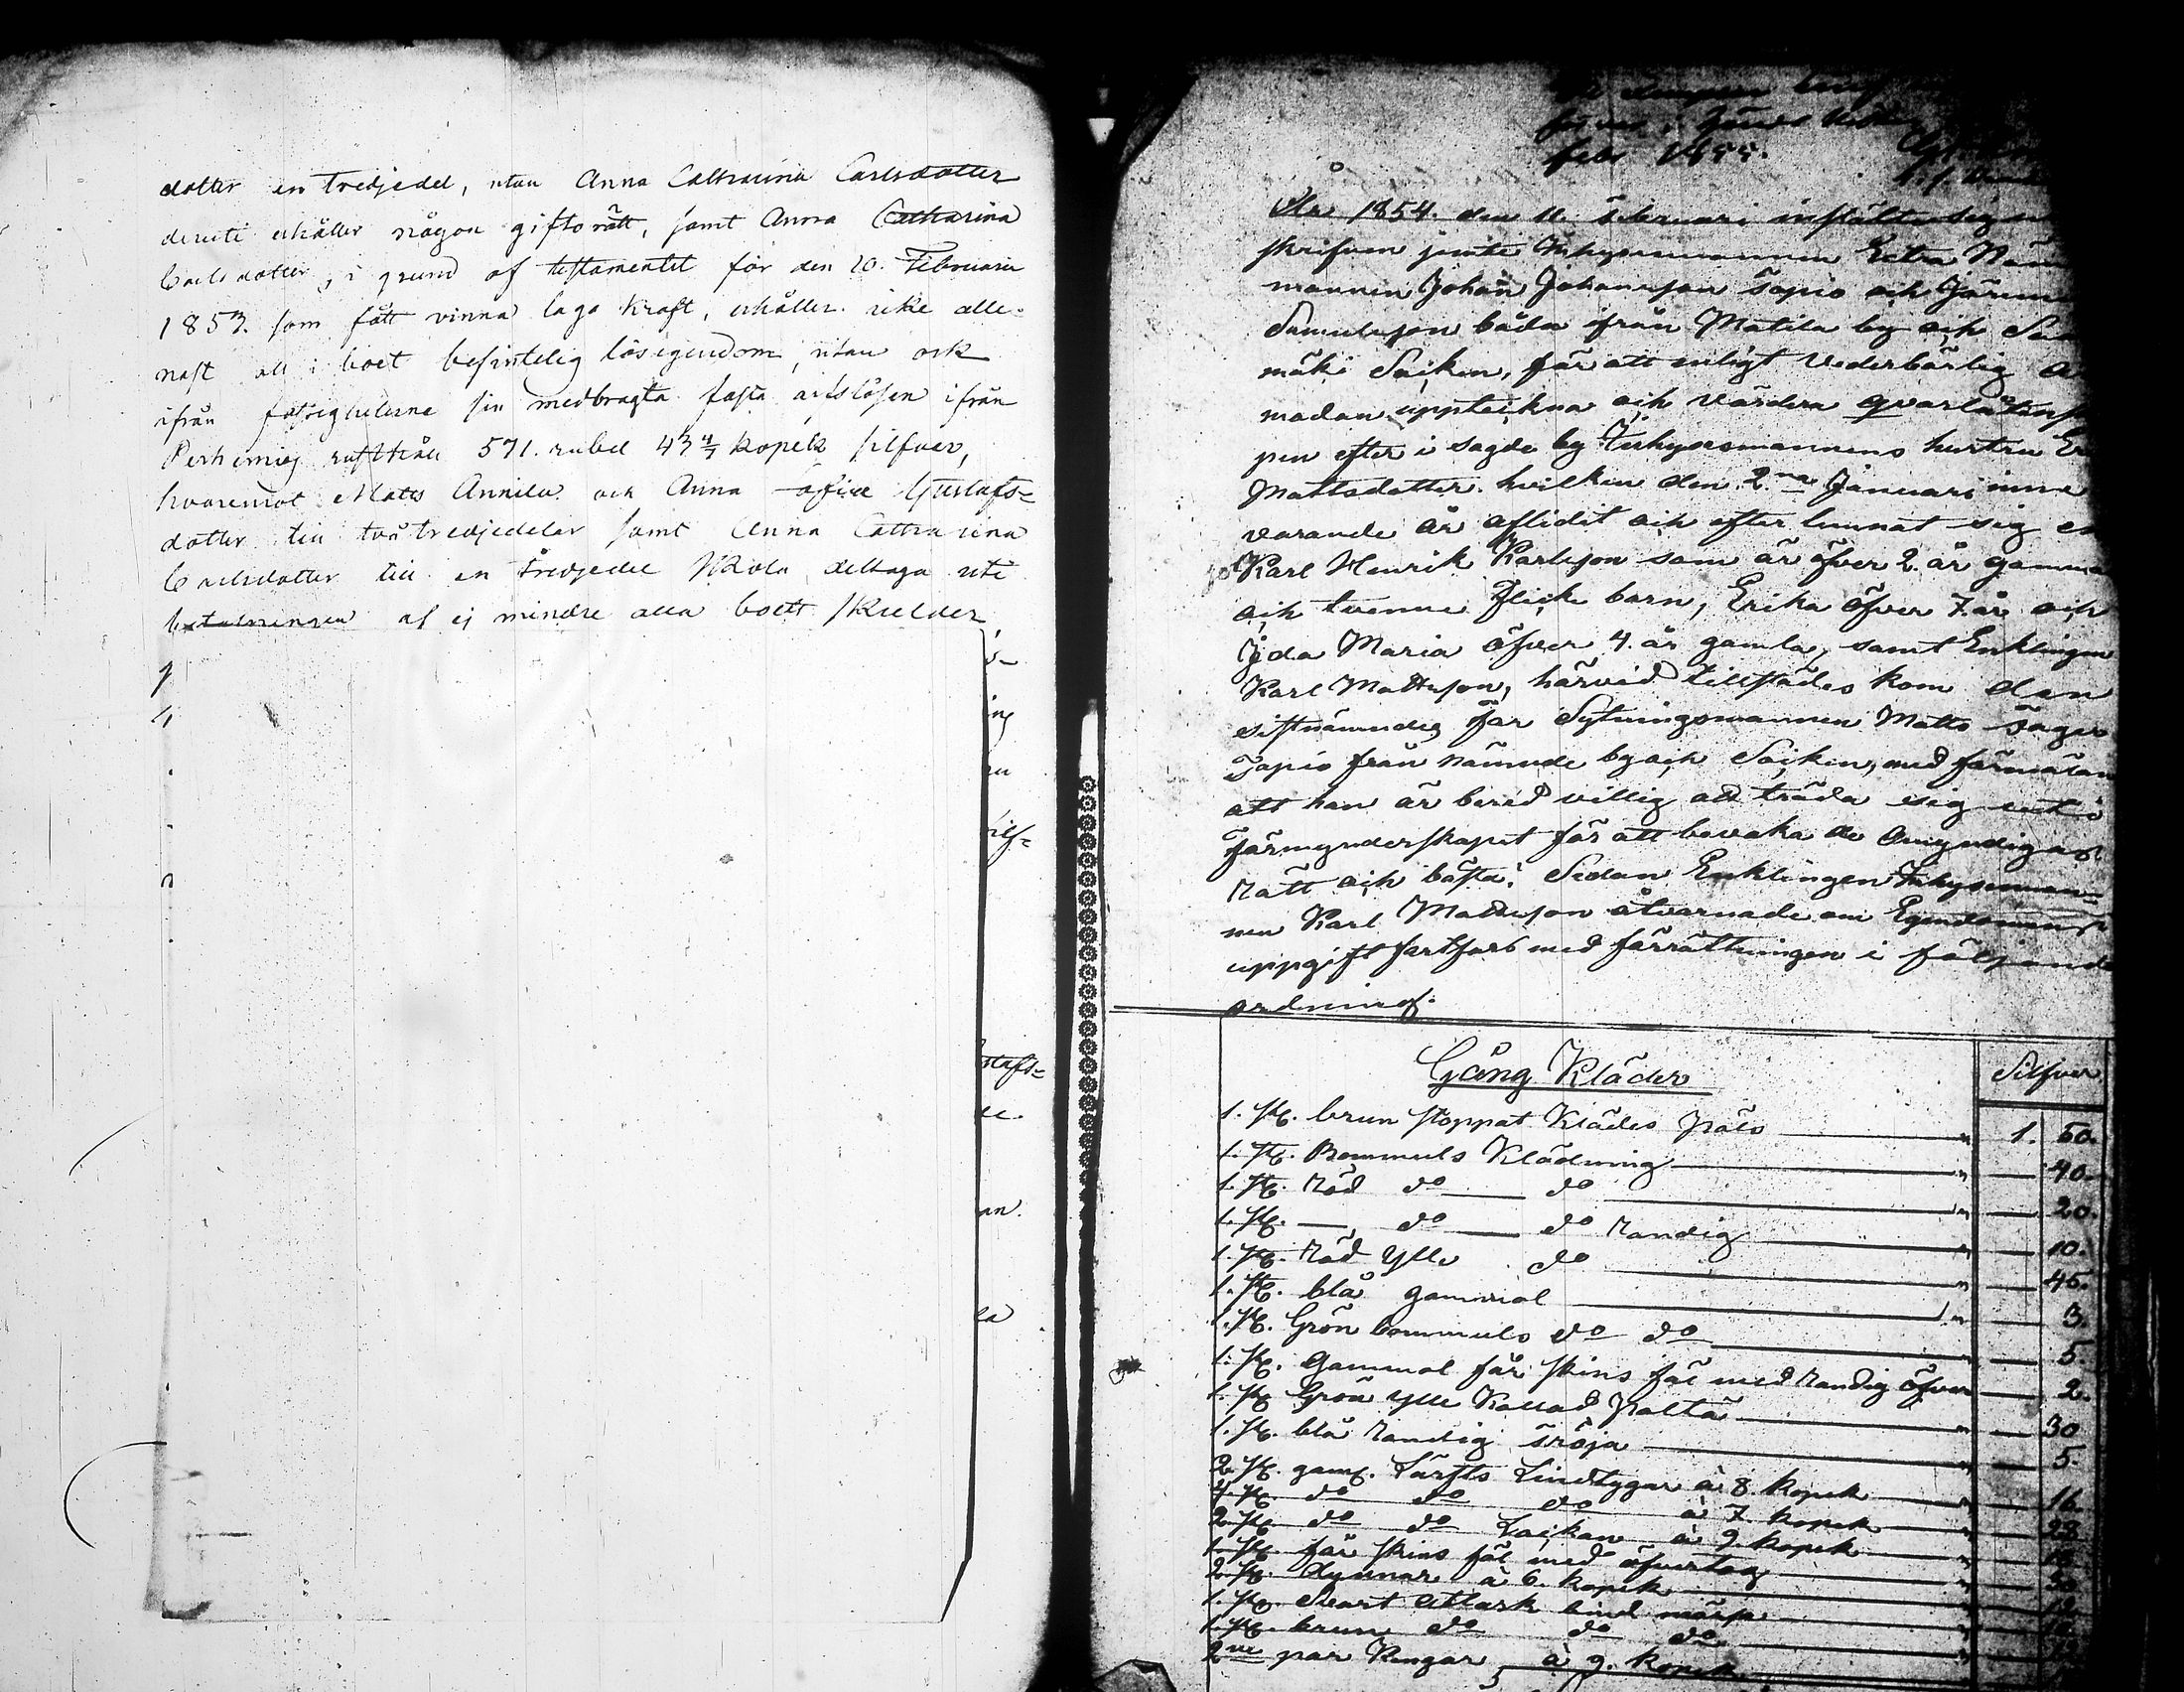 dotter en tredjedel, utan Anna Cathrarina Carlsdotter
deruti erhåller någon giftorätt, samt Anna Catharina
Carlsdotter, i grund af testamentet för den 20. Februarii
1853. som fått vinna laga kraft, erhåller icke alle-
nast all i boet befintelig lösegendom, utan ock
ifrån fastigheterne sin medbragta fasta arfslösen ifrån
rusthåll 571. rubel 43 4/7 kopek silfver,
hvaremot Matts Annila och Anna Gustafs=
dotter till två tredjedelar samt Anna Cathrarina
Carlsdotter till en tredjedel skola deltaga uti
betalningen af ej mindre alla boets skulder
ing
tafs=
febr 1855.
År 1854. den 11. Februari instälte sig
skrifven jemte Inhysesmannen Extra
mannen Johan Johansson Tapio och
Samulsson båda från Matila by och
mäki Soiken, för att enligt vederbörlig
madan uppteckna och värdera qvarlåtens
pen efter i sagde by Inhysesmannens hustru
Mattsdotter. hvilken den 2.na Januari inne
varande år aflidit och efter lemnat sig
Karl Henrik Karlsson som är öfver 2. år gamma
och tvenne Flick barn, Erika öfver 7. år och
Ida Maria öfver 4. år gamla, samt Enklingen
Karl Mattsson, härvid tillstädes kom den
sistnämndes far Sytningsmannen Matts
Tapio från nämnde by och Soiken, med förmälan
att han är bered villig att träda sig uti
Förmynderskapet för att bevaka de Omyndigas
rätt och bästa. Sedan Enklingen Inhysesman=
nen Karl Mattsson åtvarnade om Egendomens
uppgift fortfors med förrättningen i följande
ordning.
Gång Kläder Silfver
1. st. brun stoppat Klädes Päls " 1. 50.
1. st. Bommuls Klädning " — 40.
1. st. Röd do do " — 20.
1. st. — do do Randig " — 10.
1. st. Röd Ylle do " — 45.
1. st. blå gammal " — 3.
1. st. Grön bommuls do do " — 5.
1. st. Gammal får skins fäl med Randig öfver — 2.
1. st. Grön ylle Kallad Kolta " — 30
1. st. blå Randig Tröja " — 5.
2. st. gam. Lärfts Lindtygar à 8. kopek " — 16
4. st. do do do à 7. kopek " — 28
2. st. do do Lackan à 9. kopek " — 18
1. st. får skins fäl med öfvertag " — 30
2. st. Dynnar à 6. kopek " — 12
1. st. Svart Atlask bind mössa "
1. st. brun do do do
2.ne par Kengar à 9. kopek